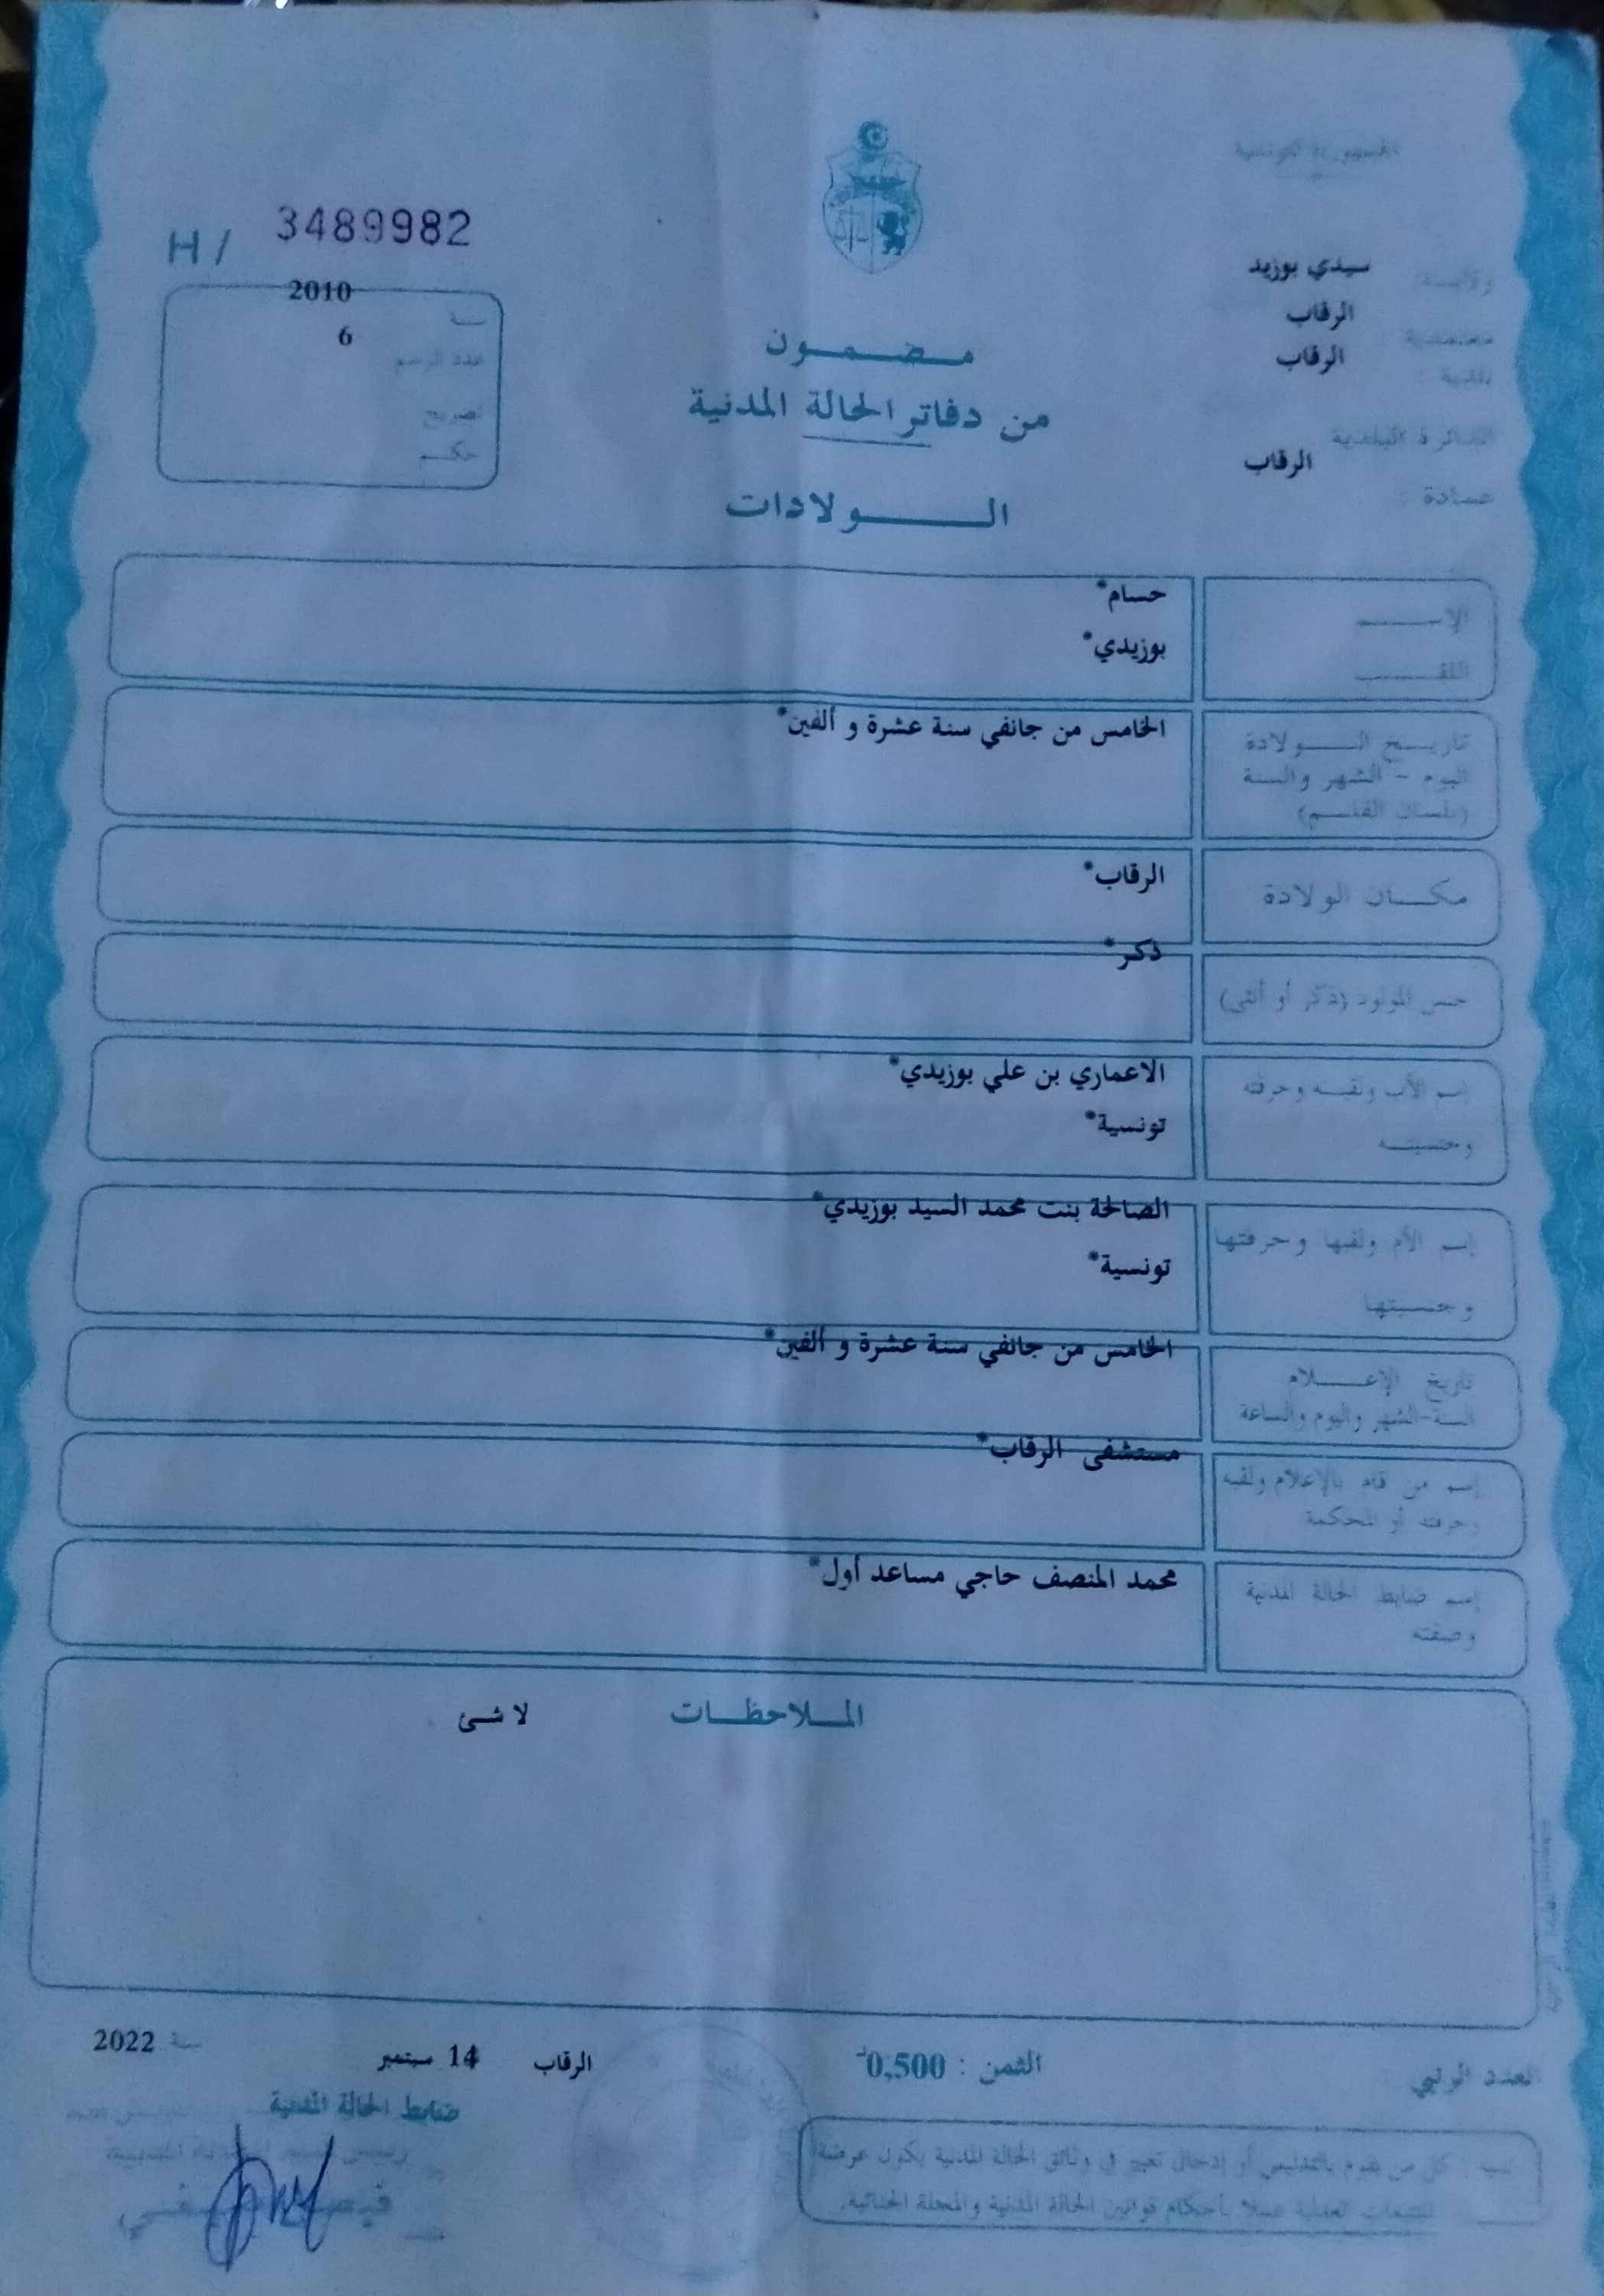 الجمهورية التونسية
H/ 3489982
ولايــة: سيدي بوزيد
معتمدية الرقاب
بلدية : الرقاب
الدائرة البلدية
الرقاب
عمادة :
2010
سنة
6
عدد الرسم
تصريح
حكم
مضمون
من دفاتر الحالة المدنية
الولادات
الإسم
حسام*
اللقب
بوزيدي*
تاريخ الولادة
اليوم - الشهر والسنة
(بلسان القلم)
الخامس من جانفي سنة عشرة و ألفين*
مكان الولادة
الرقاب*
جنس المولود (ذكر أو أنثى)
ذكر*
إسم الأب ولقبه وحرفته
الاعماري بن علي بوزيدي*
وجنسيته
تونسية*
إسم الأم ولقبها وحرفتها
الصالحة بنت محمد السيد بوزيدي*
وجنسيتها
تونسية*
تاريخ الإعلام
السنة-الشهر واليوم والساعة
الخامس من جانفي سنة عشرة و ألفين*
إسم من قام بالإعلام ولقبه
وحرفته أو المحكمة
مستشفى الرقاب*
إسم ضابط الحالة المدنية
وصفته
محمد المنصف حاجي مساعد أول*
الملاحظات لا شئ
العدد الرتبي
الثمن : 0,500د
الرقاب 14 سبتمبر سنة 2022
ضابط الحالة المدنية
كل من يقوم بالتدليس أو إدخال تغيير في وثائق الحالة المدنية يكون عرضة
للتتبعات العدلية عملا بأحكام قوانين الحالة المدنية والمجلة الجنائية.